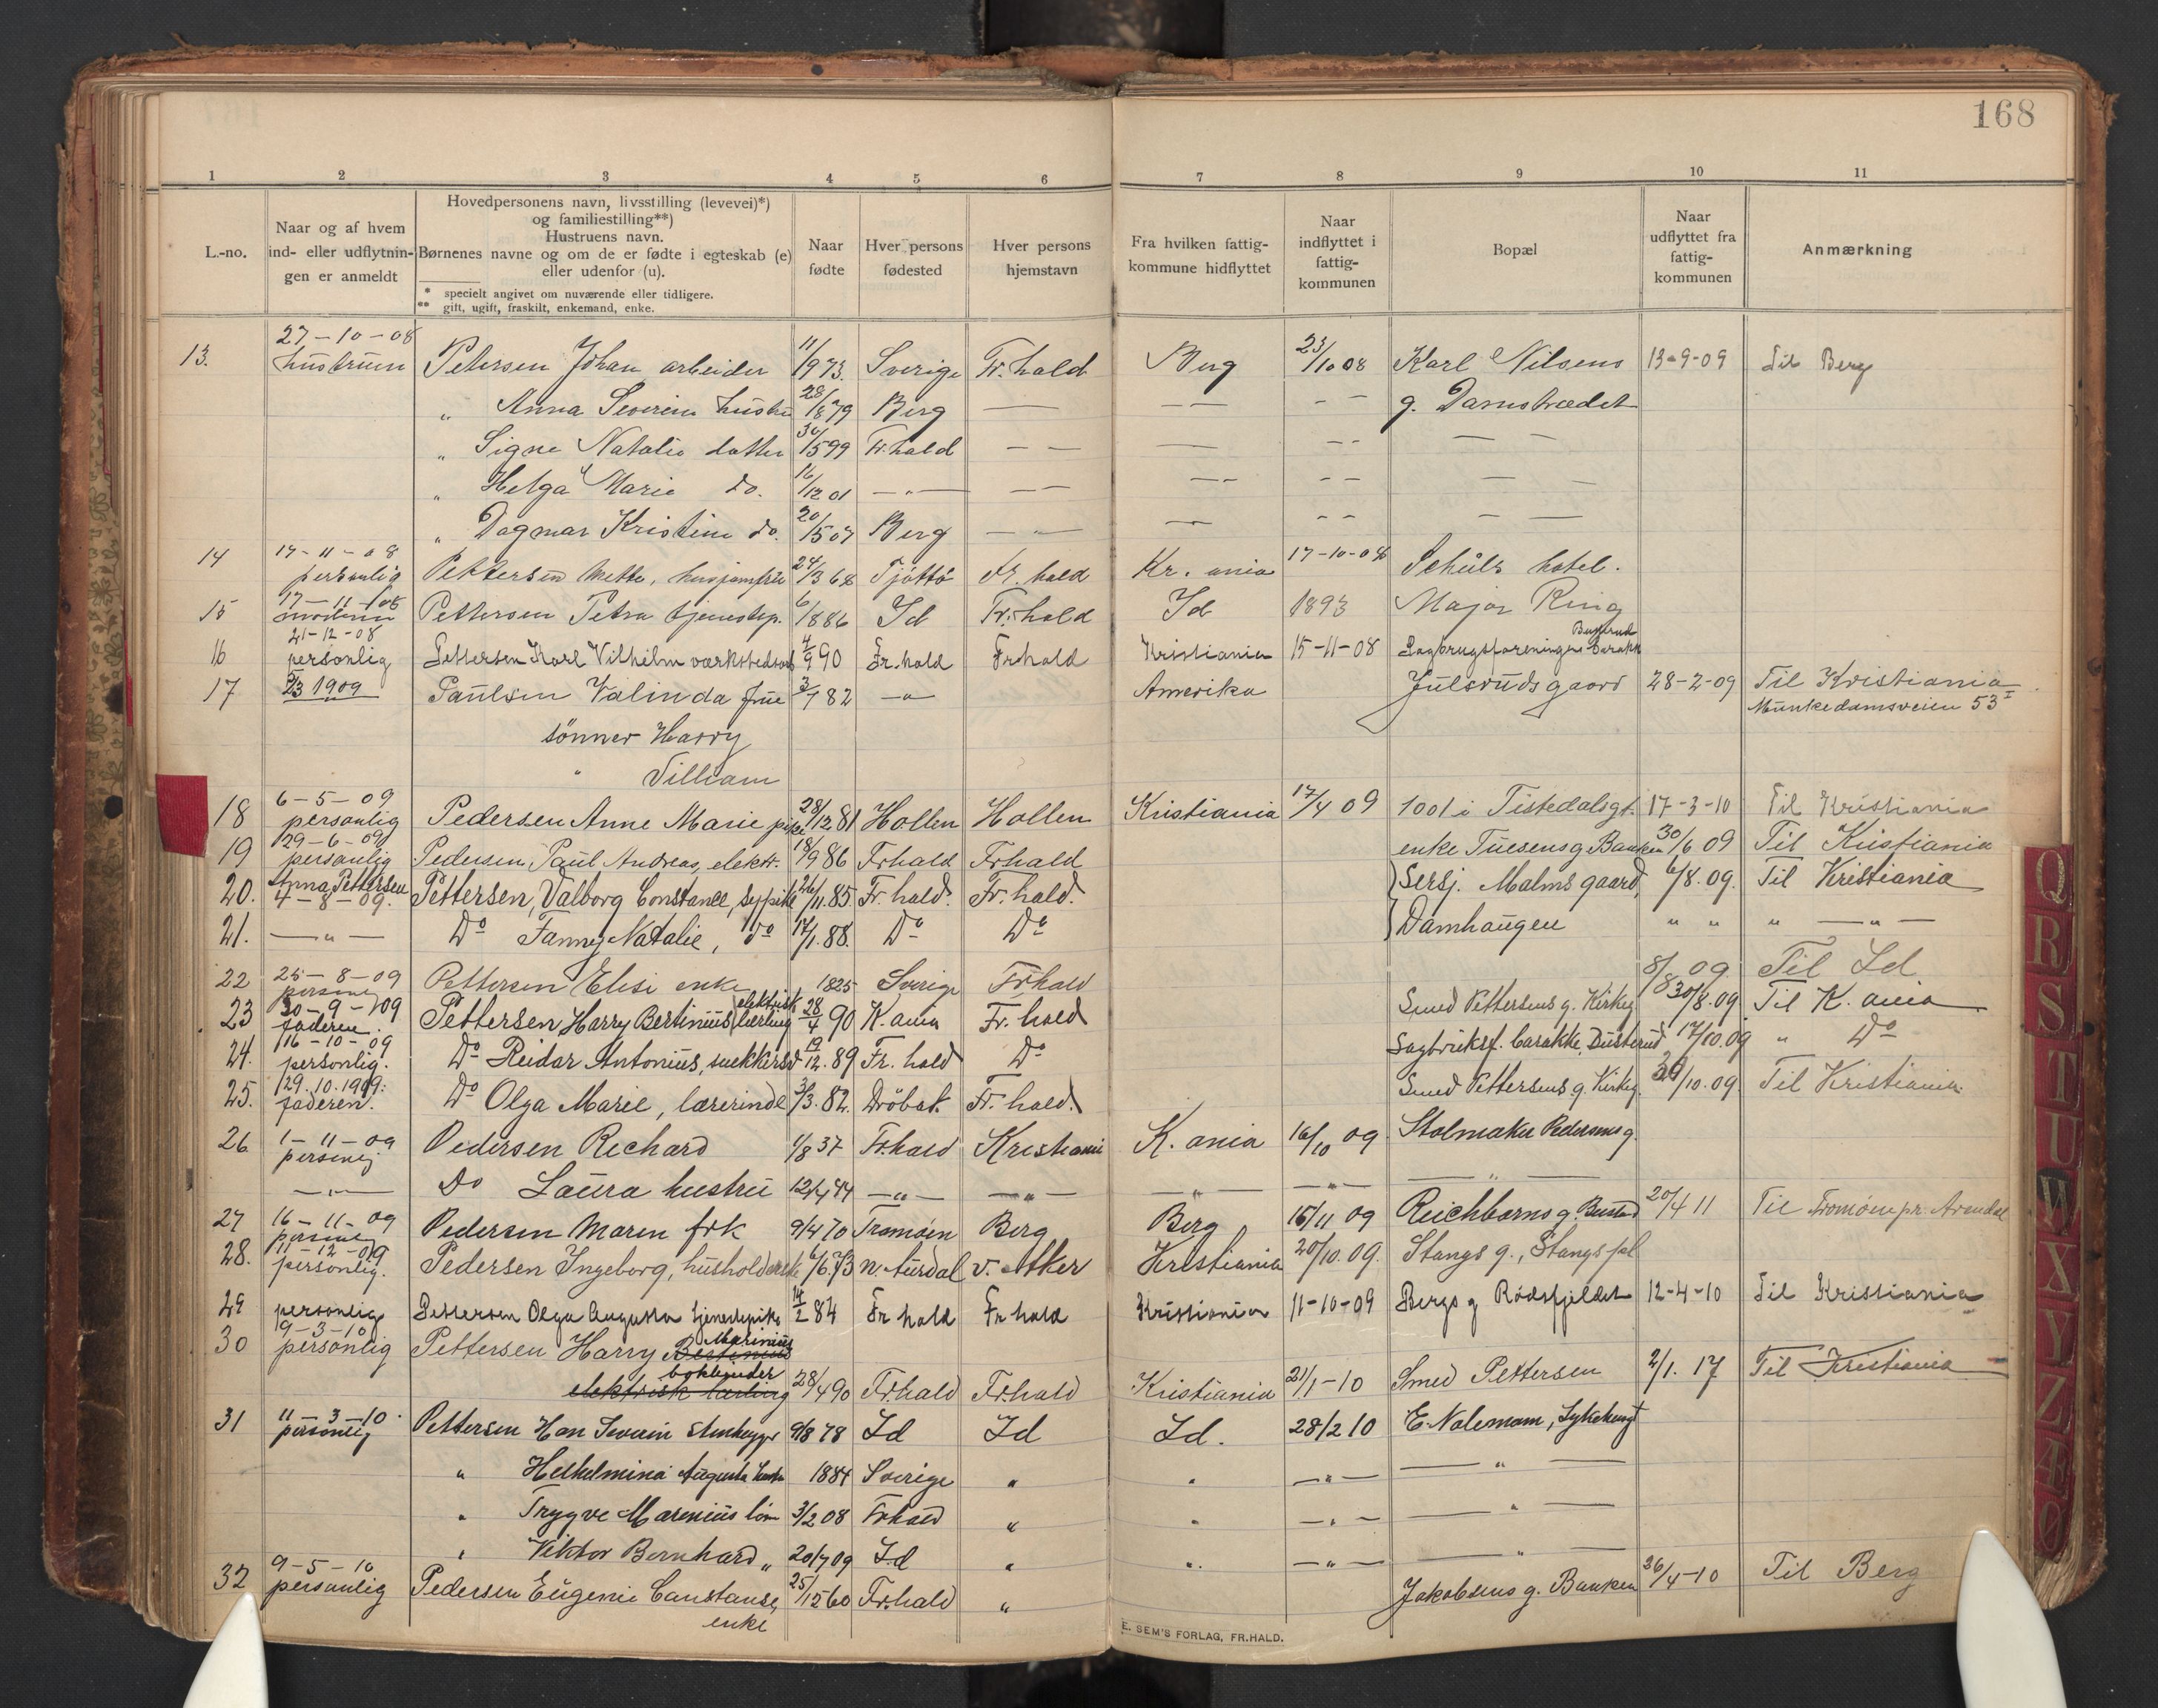 168
1 2 3 4 5 6 7 8 9 10 11
L.-no.
Naar og af hvem
ind- eller udflytnin-
gen er anmeldt
Hovedpersonens navn, livsstilling (levevei)*)
og familiestilling**)
Hustruens navn.
Børnenes navne og om de er fødte i egteskab (e)
eller udenfor (u).
* specielt angivet om nuværende eller tidligere.
** gift, ugift, fraskilt, enkemand, enke.
Naar
fødte
Hver persons
fødested
Hver persons
hjemstavn
Fra hvilken fattig-
kommune hidflyttet
Naar
indflyttet i
fattig-
kommunen
Bopæl
Naar
udflyttet fra
fattig-
kommunen
Anmærkning
27-10-08
13. hustruen Petersen Johan arbeider 11/9 73. Sverige Fr.hald Berg 23/10 08 Karl Nilsens 13-9-09 Til Berg
„ Anna Severine hustru 28/8 79 Berg — — — - - g. Damstrædet
„ Signe Natalie datter 30/5 99 Fr.hald — — — - - — —
„ Helga Marie do. 16/12 01 — „ — — — — - - - — —
„ Dagmar Kristine do. 20/5 07 Berg — „ — - - — —
17-11-08
14 personlig Pettersen Mette, husjomfru 24/3 68 Tjøttø Fr. hald Kr. ania 17-10-08 Schulz hotel.
17-11-08
15 moderen Pettersen Petra tjenestep. 6/8 86 Id Fr.hald Id 1893 Major Ring
21-12-08
16 personlig Pettersen Karl Vilhelm værkstedsarb 4/9 90 Fr.hald Fr.hald Kristiania 15-11-08 Sagbrugsforeningens barakk
17 2/3 1909 Paulsen Valinda frue 3/7 82 — „ Amerika Julsrudsgaard 28-2-09 Til Kristiania
Munkedamsveien 53 I
sønner Harry
„ Villiam
6-5-09
18 personlig Pedersen Anne Marie pike 28/12 81 Hollen Hollen Kristiania 17/4 09 1001 i Tistedalsgt. 17-3-10 Til Kristiania
29-6-09
19 personlig Pedersen, Paul Andreas, elektr. 18/9 86 Frhald Frhald enke Tuesens g Banken 30/6 09 Til Kristiania
Anna Pettersen
20. 4-8-09. Pettersen, Valborg Constance, sypike 26/11. 85. Fr. hald. Fr. hald. Sersj. Malms gaard, 6/8. 09. Til Kristiania
21. — „ — Do Fanny Natalie, do 17/1. 88. Do Do Damhaugen „ „ „ — „ —
25-8-09
22 Pettersen Elisi enke 1825 Sverige Frhald 8/8 09. Til Id
30-9-09
23 faderen. Pettersen Harry Bertinius elektrisk lærling 28/4 90 K. ania Fr. hald Smed Pettersens g. Kirkeg 30/8. 09. Til K. ania
16-10-09
24. personlig. Do Reidar Antonius, 19/12. 89 Fr. hald Do Sagbruksf. barakke, 17/10. 09 „ Do
29. 10. 1909.
25. faderen. Do Olga Marie, lærerinde 3/3. 82. Drøbak Fr. hald. Smed Pettersens g. Kirkeg. 29/10. 09. Til Kristiania.
1-11-09
26 Pedersen Richard 1/8 37 Fr.hald Kristiania K. ania 16/10 09 Stolmaker Pedersens g.
— „ — Do Laura hustru 12/4 44 — „ — — „ — — „ — — „ — — „ —
16-11-09
27 Pedersen Maren frk 9/4 70 Tromøen Berg Berg 15/11 09 Reichborns g. Busterud 20/4 11 Til Tromøen pr. Arendal
11-12-09
28. personlig. Pedersen Ingeborg, husholderske 6/6. 73 N. Aurdal V. Aker Kristiania 20/10. 09. Stangs g., Stangspl
29 personlig Pettersen Olga Augusta tjenestepike 14/2 84 Fr hald Fr hald Kristiania 11-10-09 Bergs g Rødsfjeldet 12-4-10 Til Kristiania
9-3-10
30 personlig Pettersen Harry Bertinius Marinius
bokbinder
elektrisk lærling 28/4 90 Frhald Frhald Kristiania 21/1-10 Smed Pettersen 2/1. 17 Til Kristiania
11-3-10.
31 personlig Pettersen Han Severin stenhugger 9/8 78 Id Id Id. 28/2 10 E. Nolemam,
„ Helhelmina Augusta hustru 1884 Sverige „ „ — „ — — „ —
„ Trygve Marenius søn 3/2 08 Frhald „ „ — „ — — „ —
„ Viktor Bernhard „ 20/7 09 Id „ „ — „ — — „ —
9-5-10
32 personlig Pedersen Eugenie Constanse, 25/12 60 Fr.hald „ Jakobsens g. Banken 26/4-10 Til Berg
enke
E. SEM'S FORLAG, FR.HALD.
Q
R
S
T
U
W
X
Y
Z
Æ
Ø